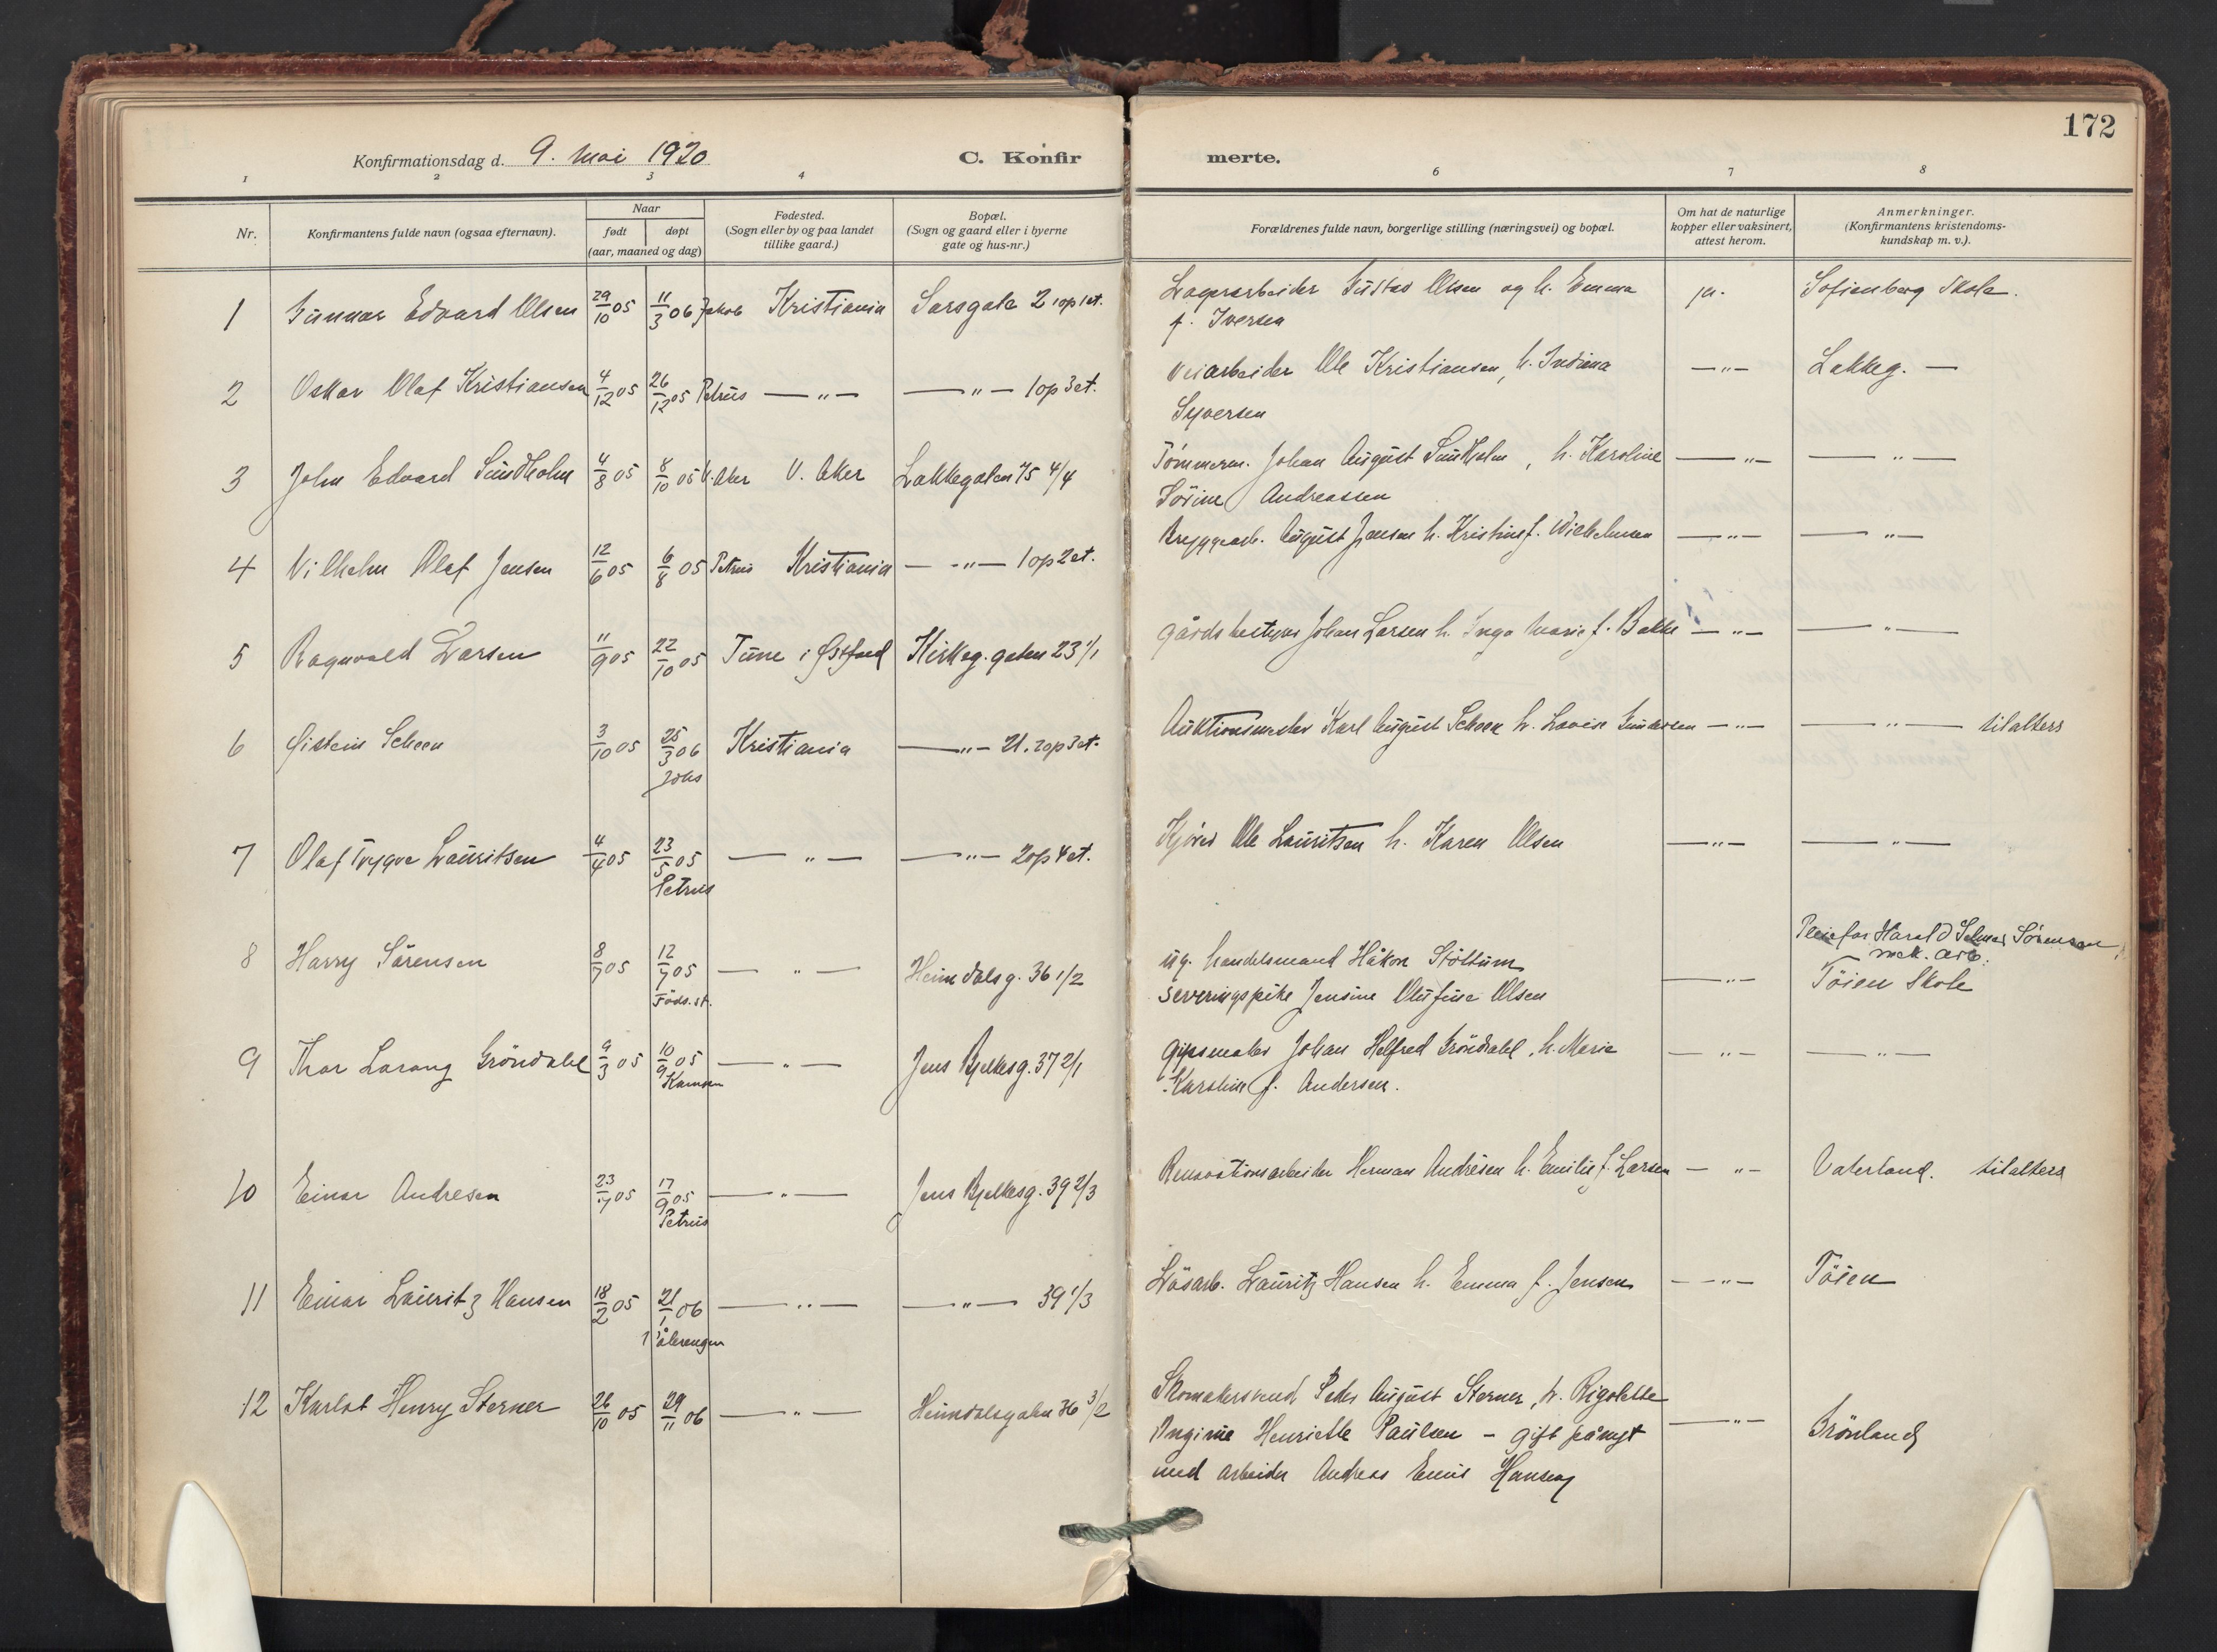 172
Konfirmationsdag d. 9. mai 1920 C. Konfir merte.
1 2 3 4 6 7 8
Nr. Konfirmantens fulde navn (ogsaa efternavn). Naar født døpt (aar, maaned og dag) Fødested. (Sogn eller by og paa landet tillike gaard.) Bopæl. (Sogn og gaard eller i byerne gate og hus-nr.) Forældrenes fulde navn, borgerlige stilling (næringsvei) og bopæl. Om hat de naturlige kopper eller vaksinert, attest herom. Anmerkninger. (Konfirmantens kristendoms-kundskap m. v.).
1 Gunnar Edvard Olsen 29/10 05 11/3 06 Jakob Kristiania Sarsgate 2 1 op 1 et. Lagerarbeider Gustav Olsen og h. Emma ja. Sofienberg Skole.
f. Iversen
2 Oskar Olaf Kristiansen 4/12 05 26/12 05 Petrus — " — — " — 1 op 3 et. Veiarbeider Ole Kristiansen, h. Indiana — " — Lakkeg. —
Syversen
3 John Edvard Sundholm 4/8 05 8/10 05 V. Aker V. Aker Lakkegaten 75 4/4 Tømmerm. Johan August Sundholm, h. Karoline — " — — " —
Sørine Andreassen
4 Vilhelm Olaf Jensen 12/6 05 6/8 05 Petrus Kristiania — " — 1 op 2 et. Bryggearb. August Jensen h. Kristine f. Wilhelmsen — " — — " —
5 Ragnvald Larsen 11/9 05 22/10 05 Tune i Østfold Kirkeg. gaten 23 1/1 Gårdsbestyrer Johan Larsen h. Inga Marie f. Bakke — " — — " —
6 Øistein Scheen 3/10 05 25/3 06 Kristiania — " — 21. 2 op 3 et. Auktionsmester Karl August Scheen h. Lovise Gundersen — " — — " — tilalters
Johs
7 Olaf Trygve Lauritsen 4/4 05 23/5 05 — " — — " — 2 op 4 et. Kjører Ole Lauritsen h. Karen Olsen — " — — " —
Petrus
8 Harry Sørensen 8/7 05 12/7 05 — " — Heimdalsg. 36 1/2 ug. handelsmand Håkon Støltum — " — Pleiefar Harald Selmer Sørensen
mek. arb.
Føds. st. serveringspike Jensine Olufine Olsen Tøien Skole
9 Thor Lorang Grøndahl 9/3 05 10/9 05 — " — Jens Bjelkesg. 37 2/1 Gipsmaker Johan Helfred Grøndahl, h. Marie — " — — " —
Kampen Karoline f. Andersen.
10 Einar Andresen 23/7 05 17/9 05 — " — Jens Bjelkesg. 39 2/3 Renovationsarbeider Herman Andresen h. Emilie f. Larsen — " — Vaterland. tilalters
Petrus
11 Einar Lauritz Hansen 18/2 05 21/1 06 — " — — " — 39 1/3 Løsarb. Lauritz Hansen h. Emma f. Jensen — " — Tøien
Vålerengen
12 Karlot Henry Sterner 26/10 05 29/11 06 — " — Heimdalsgaten 36 3/2 Skomakersvend Peder August Sterner, h. Rigolette
Henriette Paulsen – gift pånyt — " — Grønland
med arbeider Andreas Emil Hansen